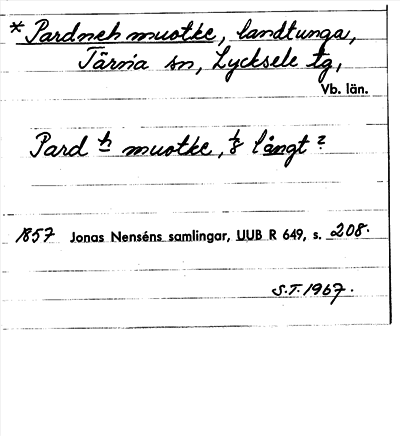 * Pardneh muotke, landtunga,
Tärna sn, Lycksele tg,
Vb. län.
Pard h muotke, 1/8 långt ?
1857 Jonas Nenséns samlingar, UUB R 649, s. 208.
S.T. 1967.